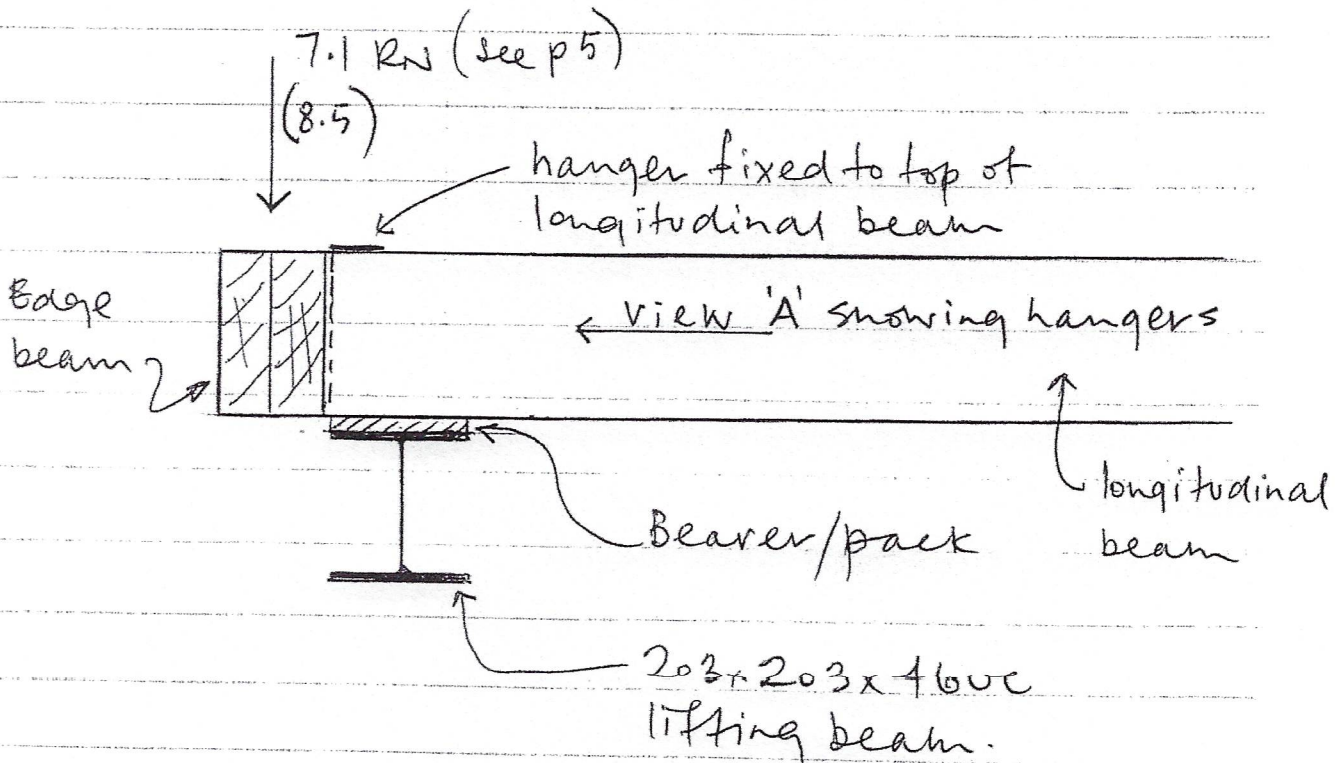 7.1 kN (see p 5)
(8.5)
hanger fixed to top of
longitudinal beam
Edge
beam
view 'A' showing hangers
longitudinal
beam
Bearer/pack
203x203x46UC
lifting beam.